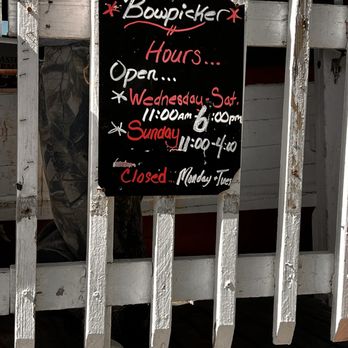 Bowpicker
Hours...
Open...
Wednesday - Sat.
11:00am - 6:00pm
Sunday
11:00-4:00
Closed... Monday + Tues